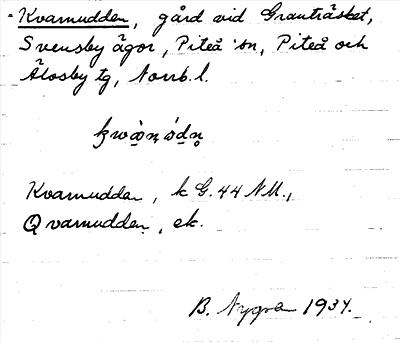 Kvarnudden, gård vid Granträsket,
Svensby ägor, Piteå sn, Piteå och
Älvsby tg, Norrb. l.
Kvarnudden, k G. 44 NU.,
Qvarnudden, ek.
B. Nygren 1934.